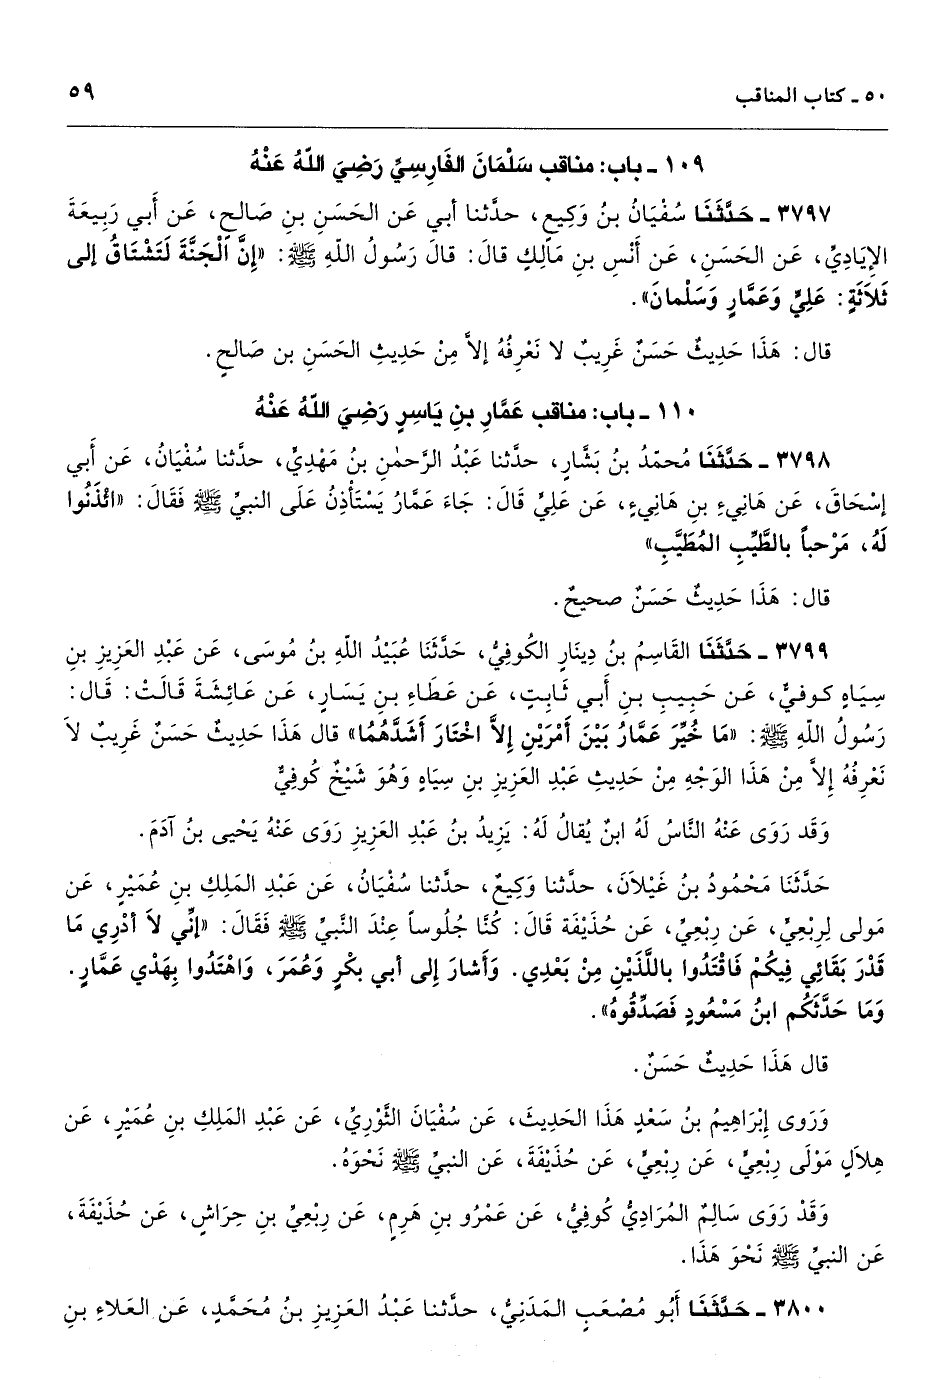 ٥٠ ـ كتاب المناقب ٥٩
١٠٩ ـ باب: مناقب سَلْمَانَ الفَارِسِيِّ رَضِيَ اللّهُ عَنْهُ
٣٧٩٧ ـ حَدَّثَنَا سُفْيَانُ بنُ وَكِيعٍ، حدَّثنا أبي عَن الحَسَنِ بنِ صَالحٍ، عَن أَبي رَبِيعَةَ
الإيَادِيِّ، عَن الحَسَنِ، عَن أَنَسِ بنِ مَالِكٍ قالَ: قالَ رَسُولُ اللّهِ ﷺ: «إنَّ الْجَنَّةَ لَتَشْتَاقُ إلى
ثَلاَثَةٍ: عَلِيٍّ وَعَمَّارٍ وَسَلْمانَ».
قال: هَذَا حَدِيثٌ حَسَنٌ غَرِيبٌ لا نَعْرِفُهُ إلاَّ مِنْ حَدِيثِ الحَسَنِ بن صَالحٍ.
١١٠ ـ باب: مناقب عَمَّارِ بنِ يَاسِرٍ رَضِيَ اللّهُ عَنْهُ
٣٧٩٨ ـ حَدَّثَنَا مُحمّدُ بنُ بَشَّارٍ، حدّثنا عَبْدُ الرَّحمٰنِ بنُ مَهْدِيٍّ، حدَّثنا سُفْيَانُ، عَن أَبي
إسْحَاقَ، عَن هَانِيءِ بنِ هَانِيءٍ، عَن عَلِيٍّ قَالَ: جَاءَ عَمَّارُ يَسْتَأْذِنُ عَلَى النبيِّ ﷺ فَقَالَ: «ائْذَنُوا
لَهُ، مَرْحباً بالطَّيِّبِ المُطَيَّبِ»
قال: هَذَا حَدِيثٌ حَسَنٌ صحيحٌ.
٣٧٩٩ ـ حَدَّثَنَا القَاسِمُ بنُ دِينَارٍ الكُوفِيُّ، حَدَّثَنَا عُبَيْدُ اللّهِ بنُ مُوسَى، عَن عَبْدِ العَزِيزِ بنِ
سِيَاهٍ كوفيٌّ، عَن حَبِيبِ بنِ أبي ثَابِتٍ، عَن عَطَاءِ بنِ يَسَارٍ، عَن عَائِشَةَ قَالَتْ: قَالَ:
رَسُولُ اللّهِ ﷺ: «مَا خُيِّرَ عَمَّارُ بَيْنَ أَمْرَيْنِ إلاَّ اخْتَارَ أَشَدَّهُمَا» قال هَذَا حَدِيثٌ حَسَنٌ غَرِيبٌ لاَ
نَعْرِفُهُ إلاَّ مِنْ هَذَا الوَجْهِ مِنْ حَدِيثِ عَبْدِ العَزِيزِ بنِ سِيَاهٍ وَهُوَ شَيْخٌ كُوفِيٌّ
وَقَد رَوَى عَنْهُ النَّاسُ لَهُ ابنٌ يُقالُ لَهُ: يَزِيدُ بنُ عَبْدِ العَزِيزِ رَوَى عَنْهُ يَحْيى بنُ آدَمَ.
حَدَّثَنَا مَحْمُودُ بنُ غَيْلاَنَ، حدّثنا وَكِيعٌ، حدّثنا سُفْيَانُ، عَن عَبْدِ المَلِكِ بنِ عُمَيْرٍ، عَن
مَولى لِرِبْعِيٍّ، عَن رِبْعِيٍّ، عَن حُذَيْفَة قَالَ: كُنَّا جُلُوساً عِنْدَ النَّبيِّ ﷺ فَقَالَ: «إنِّي لاَ أدْرِي مَا
قَدْرَ بَقَائي فِيكُمْ فَاقْتَدُوا باللَّذَيْنِ مِنْ بَعْدِي. وَأَشارَ إلى أبي بكْرٍ وَعُمَرَ، وَاهْتَدُوا بِهَدْيِ عَمَّارٍ.
وَمَا حَدَّثَكُم ابنُ مَسْعُودٍ فَصَدِّقُوهُ».
قال هَذَا حَدِيثٌ حَسَنٌ.
وَرَوى إبْرَاهِيمُ بنُ سَعْدٍ هَذَا الحَدِيثَ، عَن سُفْيَانَ الثَّوْرِيِّ، عَن عَبْدِ المَلِكِ بنِ عُمَيْرٍ، عَن
هِلاَلٍ مَوْلَى رِبْعِيٍّ، عَن رِبْعِيٍّ، عَن حُذَيْفَةَ، عَن النبيِّ ﷺ نَحْوَهُ.
وَقَدْ رَوَى سَالِمٌ المُرَادِيُّ كُوفِيٌّ، عَن عَمْرُو بنِ هَرِمٍ، عَن رِبْعِيِّ بنِ حِرَاشٍ، عَن حُذَيْفَةَ،
عَن النبيِّ ﷺ نَحْوَ هَذَا.
٣٨٠٠ ـ حَدَّثَنَا أَبُو مُصْعَبٍ المَدَنِيُّ، حدَّثنا عَبْدُ العَزِيزِ بنُ مُحَمَّدٍ، عَن العَلاءِ بنِ